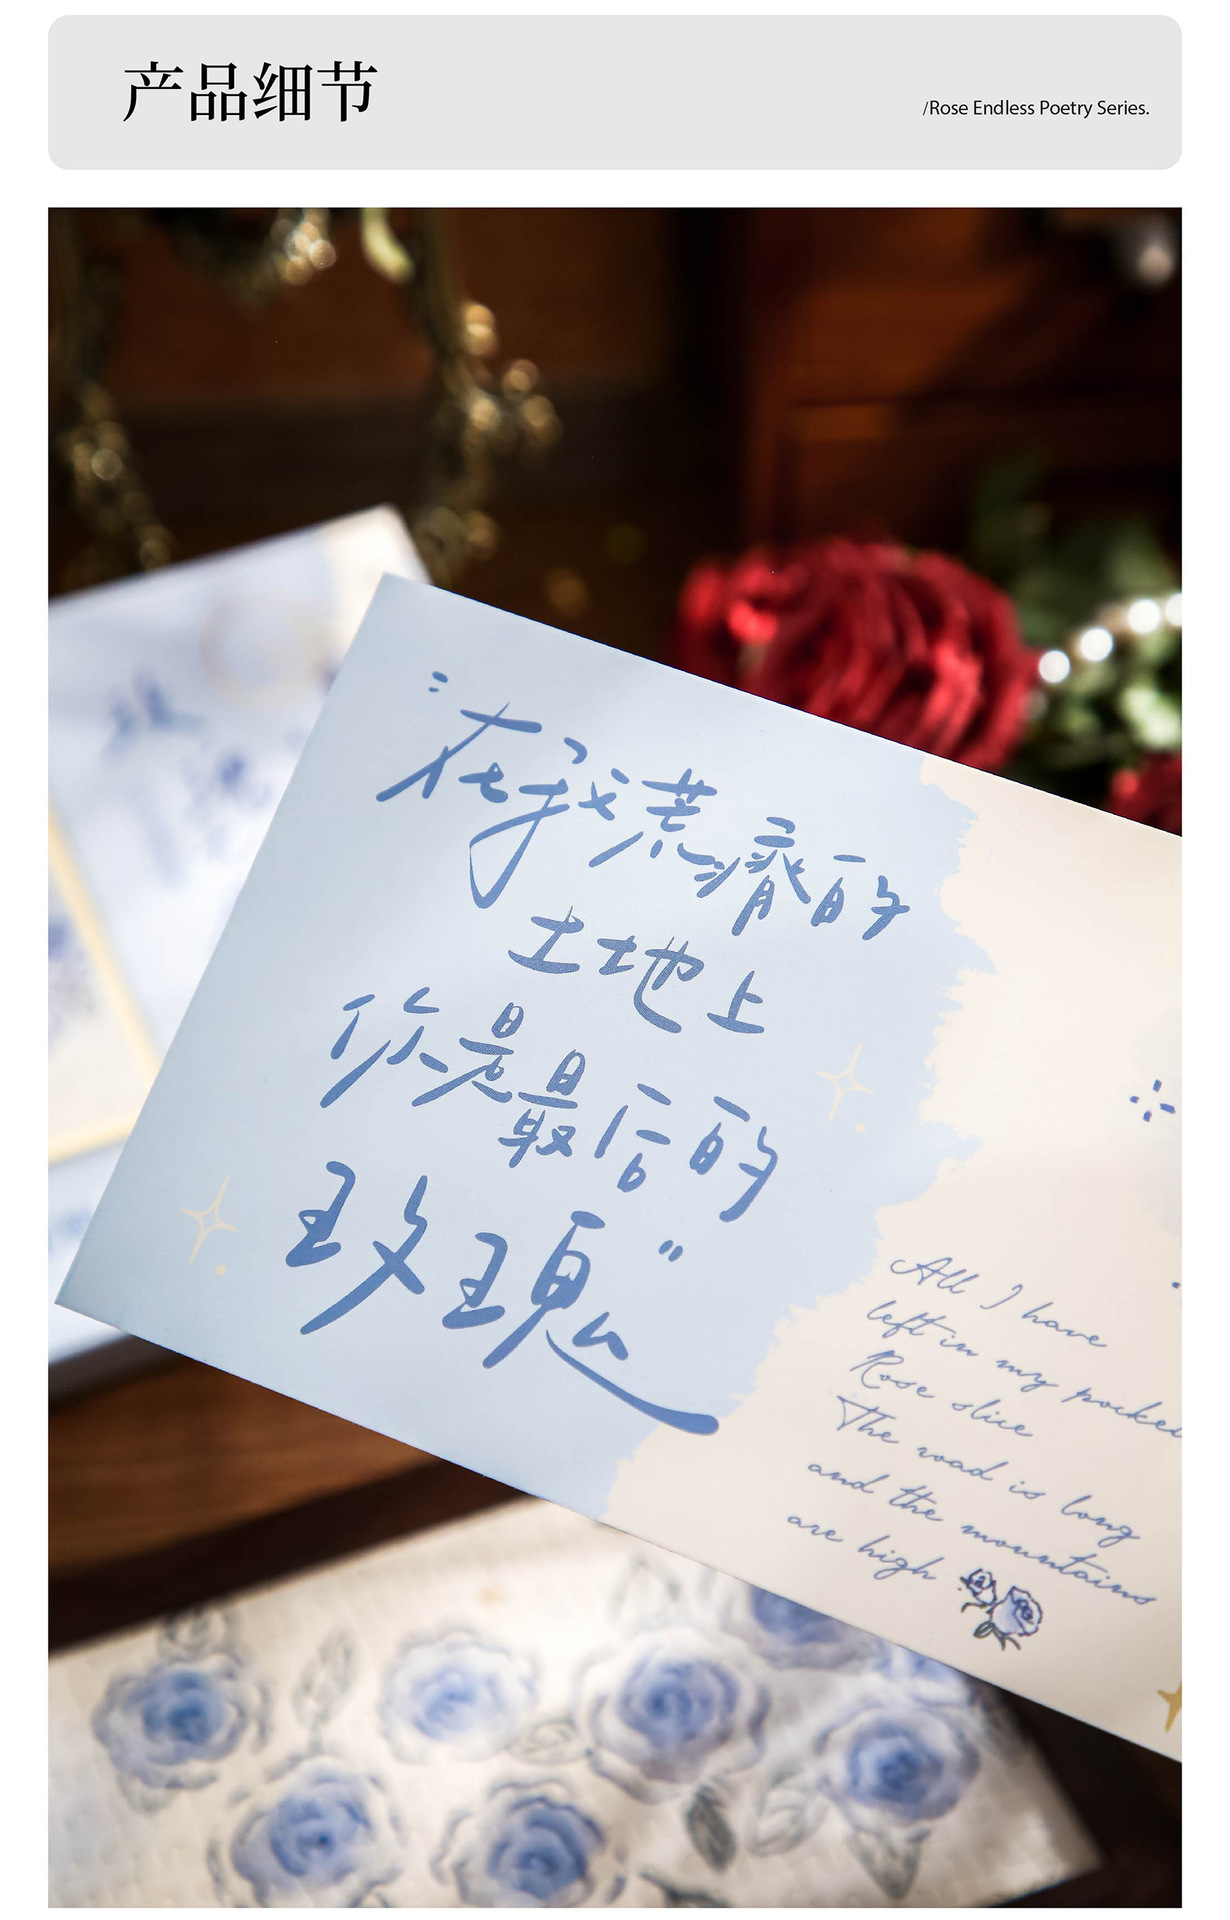 产品细节
/Rose Endless Poetry Series.
"在我荒瘠的
土地上
你是最后的
玫瑰"
All I have
left in my pocket
Rose slice
The road is long
and the mountains
are high